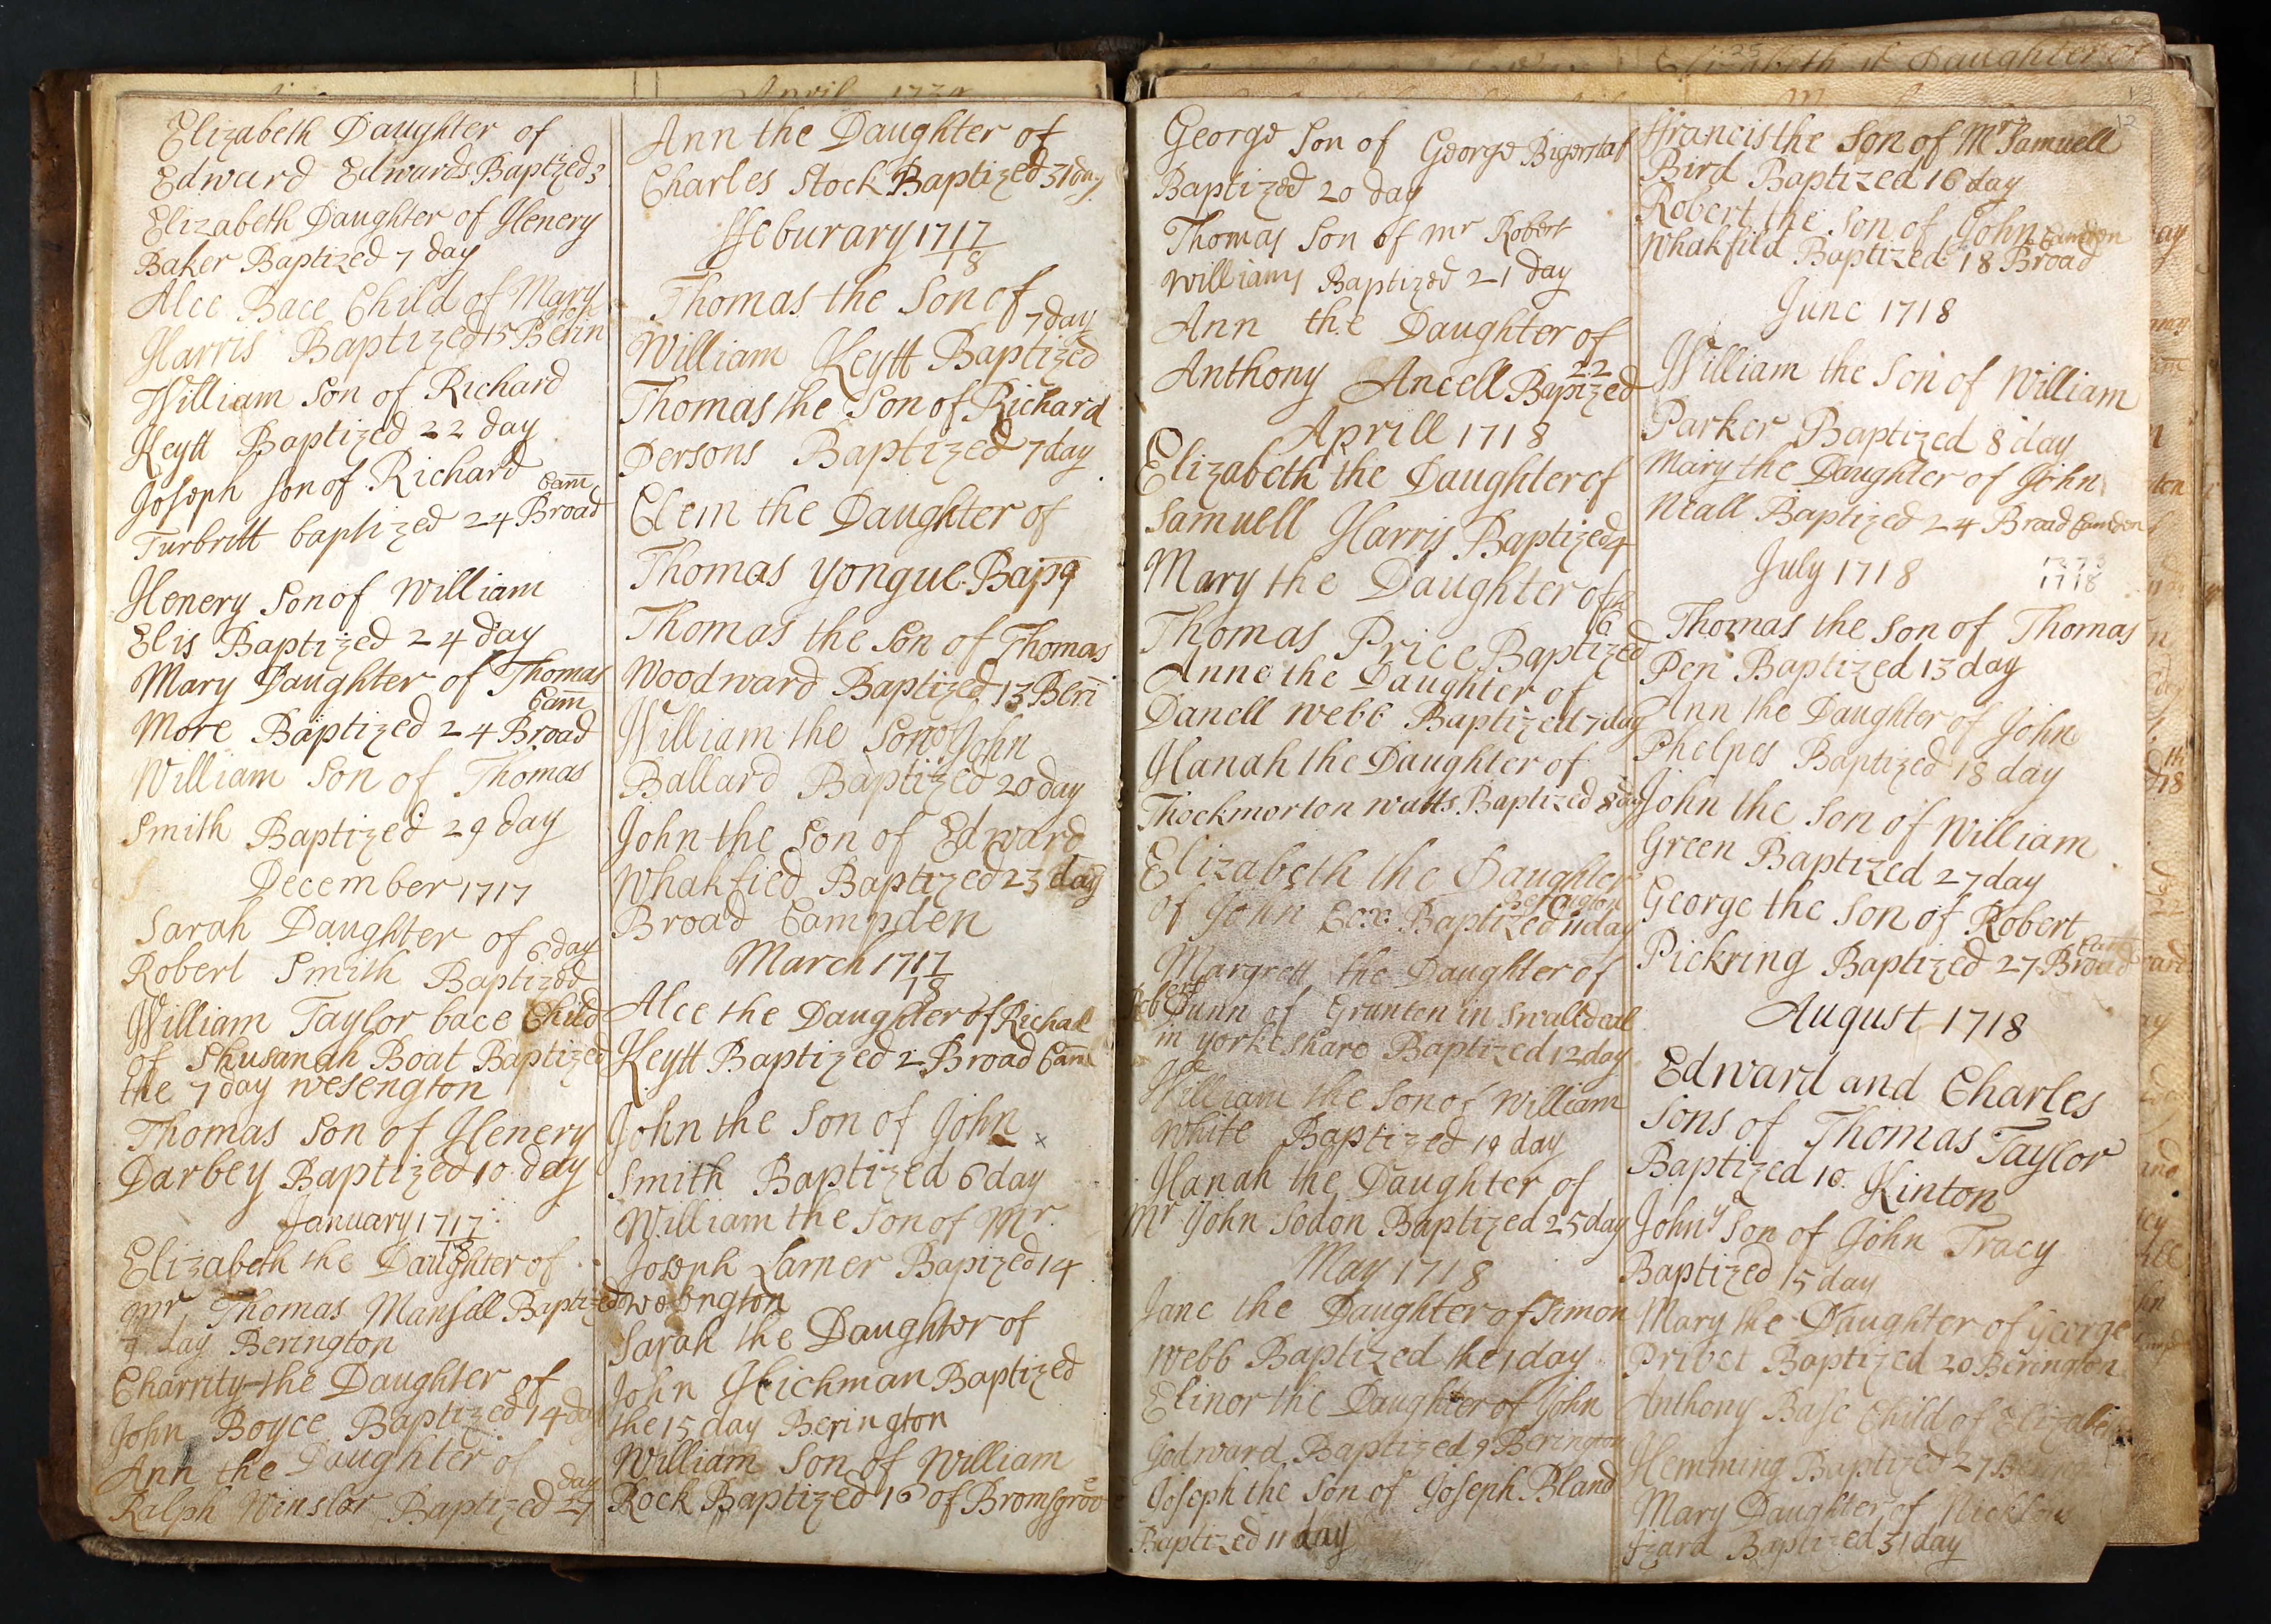 April 1739
Elizabeth Daughter of
Edward Edwards Baptized 3
Elizabeth Daughter of Henery
Baker Baptized 7 day
Alce Bace Child of Mary
Harris Baptized 15 Berin
gton
William Son of Richard
Keytt Baptized 22 day
Joseph son of Richard
Camm
Turbritt baptized 24 Broad
Henery Son of William
Elis Baptized 24 day
Mary Daughter of Thomas
Camm
More Baptized 24 Broad
William Son of Thomas
Smith Baptized 29 day
December 1717
Sarah Daughter of 6 day
Robert Smith Baptized
William Taylor bace Child
of Shusanah Boat Baptized
the 7 day wesengton
Thomas Son of Henery
Darbey Baptized 10 day
January 1717
18
Elizabeth the Daughter of
mr Thomas Mansell Baptized
day Berington
Charrity the Daughter of
John Boyce Baptized 14 day
Ann the Daughter of
day
Ralph Winslor Baptized 27
Ann the Daughter of
Charles Stock Baptized 31 day
ffeburary 1717
18
Thomas the Son of
7 day
William Keytt Baptized
Thomas the Son of Richard
Persons Baptized 7 day
Clem the Daughter of
Thomas yongue Bap 9
Thomas the Son of Thomas
Woodward Baptized 13 Berin
William the Son of John
Ballard Baptized 20 day
John the Son of Edward
Whakfied Baptized 23 day
Broad Campden
March 1717
18
Alce the Daughter of Richal
Keytt Baptized 2 Broad Cam
John the Son of John x
Smith Baptized 6 day
William the Son of Mr
Joseph Larner Baptized 14
wesington
Sarah the Daughter of
John Hichman Baptized
the 15 day Berington
William Son of William
Rock Baptized 16 of Bromsgrove
25
Elizabeth Daughter of
12
George Son of George Bigerstaf
Baptized 20 day
Thomas Son of mr Robert
Williams Baptized 21 day
Ann the Daughter of
22
Anthony Ancell Baptized
Aprill 1718
Elizabeth the Daughter of
Samuell Harris Baptized 4
Mary the Daughter of
6
Thomas Price Baptized
Anne the Daughter of
Danell Webb Baptized 7 day
Hanah the Daughter of
Thockmorton watts Baptized 8 day
Elizabeth the Daughter
Berington
of John Cox Baptized 11 day
Margrett the Daughter of
Robert Dunn of Grunton in Swalldeall
in yorkeshare Baptized 12 day
William the Son of William
White Baptized 19 day
Hanah the Daughter of
Mr John Sodon Baptized 25 day
May 1718
Jane the Daughter of Simon
Webb Baptized the 1 day
Elinor the Daughter of John
Jodward Baptized 9 Berington
Joseph the Son of Joseph Bland
Baptized 11 day
ffrancis the Son of Mr Samuell
Bird Baptized 16 day
Robert the Son of John
Camden
Whakfild Baptized 18 Broad
June 1718
William the Son of William
Parker Baptized 8 day
Mary the Daughter of John
Neall Baptized 24 Broad Camden
July 1718
1718
Thomas the Son of Thomas
Pen Baptized 13 day
Ann the Daughter of John
Phelpes Baptized 18 day
John the Son of William
Green Baptized 27 day
George the Son of Robert
Cam
Pickring Baptized 27 Broad
August 1718
Edward and Charles
Sons of Thomas Taylor
Baptized 10 Kinton
John ye Son of John Tracy
Baptized 15 day
Mary the Daughter of George
Privet Baptized 20 Berington
Anthony Base Child of Elizabe
Hemming Baptized 27
Mary Daughter of Nicklous
Izard Baptized 31 day